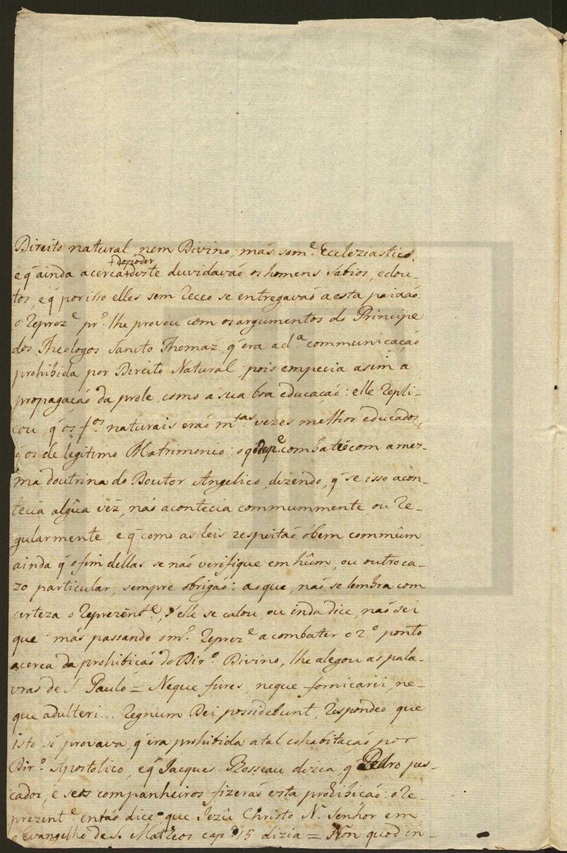 Direito natural, nem Divino: mas som.e Ecclesiastico,
do poder
e q̃ ainda acerca deste duvidavaõ os homens Sabios, e dou-
tos, e q̃ por isso elles sem receo se entregavaõ a esta paixaõ
o Reprez.e pr.o lhe provou com os argumentos do Principe
dos Theologos Sancto Thomaz, q̃ era a d.a communicaçaõ
prohibida por Direito Natural, pois empecia asim a
propagaçaõ da prole, como a sua boa educaçaõ: elle repli-
cou, q̃ os f.os naturais eraõ m.tas vezes melhor educados,
q̃ os de legitimo Matrimonio: o q̃ o combateo com a mes-
ma doutrina do Doutor Angelico, dizendo, q̃ se isso acon-
tecia algũa vêz, naõ acontecia commummente ou re-
gularmente, e q̃ como as leis respeitaõ o bem commum
ainda q̃ o fim dellas se naõ verifique em hũm, ou outro ca-
zo particular, sempre obrigaõ: ao que, naõ se lembra com
certeza o Reprezent.e, se elle se calou, ou inda dice, naõ sei
que: mas passando o m.o Reprez.e a combater o 2.o ponto
acerca da prohibiçaõ do Dir.o Divino, lhe alegou as pala-
vras de S. Paulo = Neque fures, neque fornicarii, ne-
que adulteri... regnum Dei possidebunt, respondeo que
isto só provava, q̃ era prohibida a tal cohabitaçaõ por
Dir.o Apostolico, e q̃ Jacques Rosseau dizia q̃ Pedro pes-
cador, e seos companheiros fizeraõ esta prohibiçaõ: o Re-
prezent.e entaõ dice que Jezu Christo N. Senhor em
o evangelho de S. Matheos cap. 15 dizia = Non quod in-